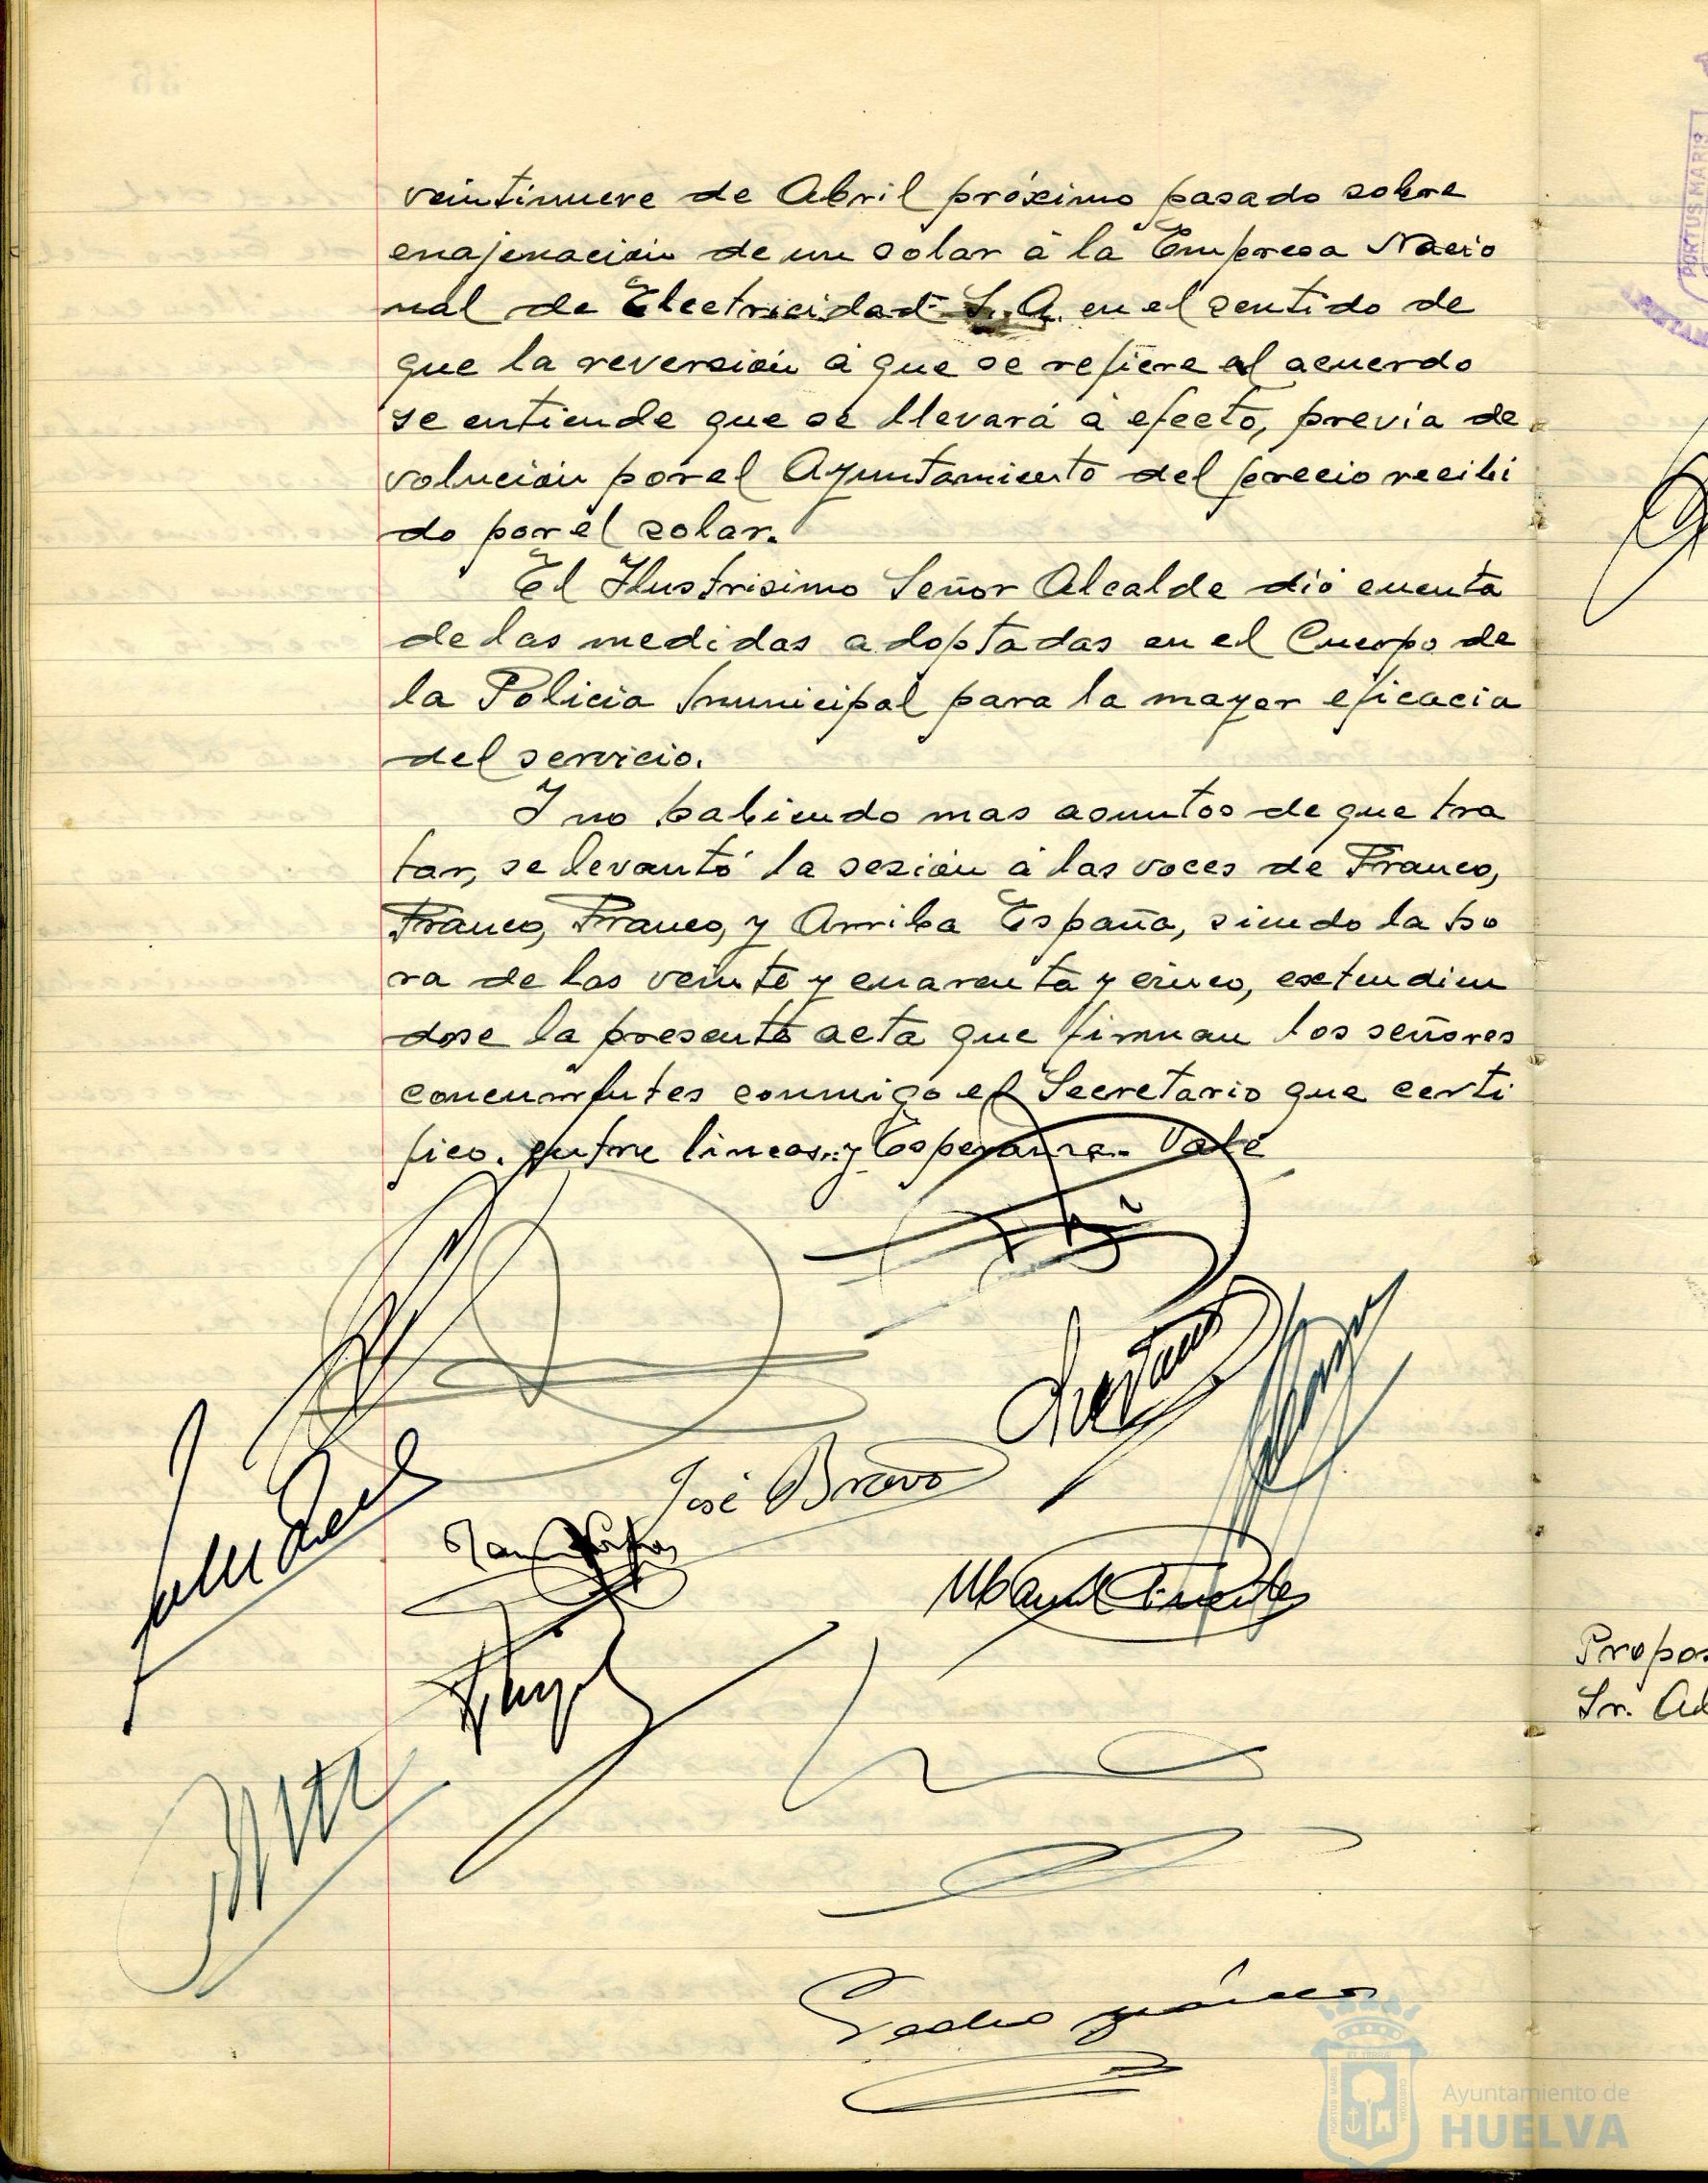 veintinueve de Abril próximo pasado sobre
enajenación de un solar á la Empresa Nacio
nal de Electricidad S. A. en el sentido de
que la reversión á que se refiere el acuerdo
se entiende que se llevará á efecto, previa de
volución por el Ayuntamiento del precio recibi
do por el solar.
El Ilustrisimo Señor Alcalde dió cuenta
de las medidas adoptadas en el Cuerpo de
la Policia Municipal para la mayor eficacia
del servicio.
Y no habiendo mas asuntos de que tra
tar, se levantó la sesión á las voces de Franco,
Franco, Franco, y Arriba España, siendo la ho
ra de las veinte y cuarenta y cinco, extendien
dose la presente acta que firman los señores
concurrentes conmigo el Secretario que certi
fico. entre lineas.- y Esperanza.- Vale
José Bravo
Manuel Fuentes
Pedro
Propos
Sr. Ad
PORTUS MARIS
Ayuntamiento de
HUELVA